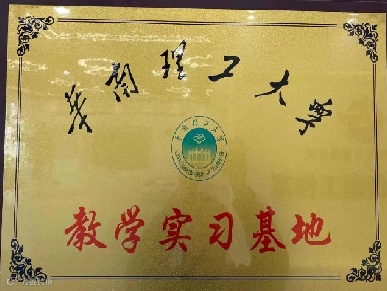 华南理工大学
教学实习基地